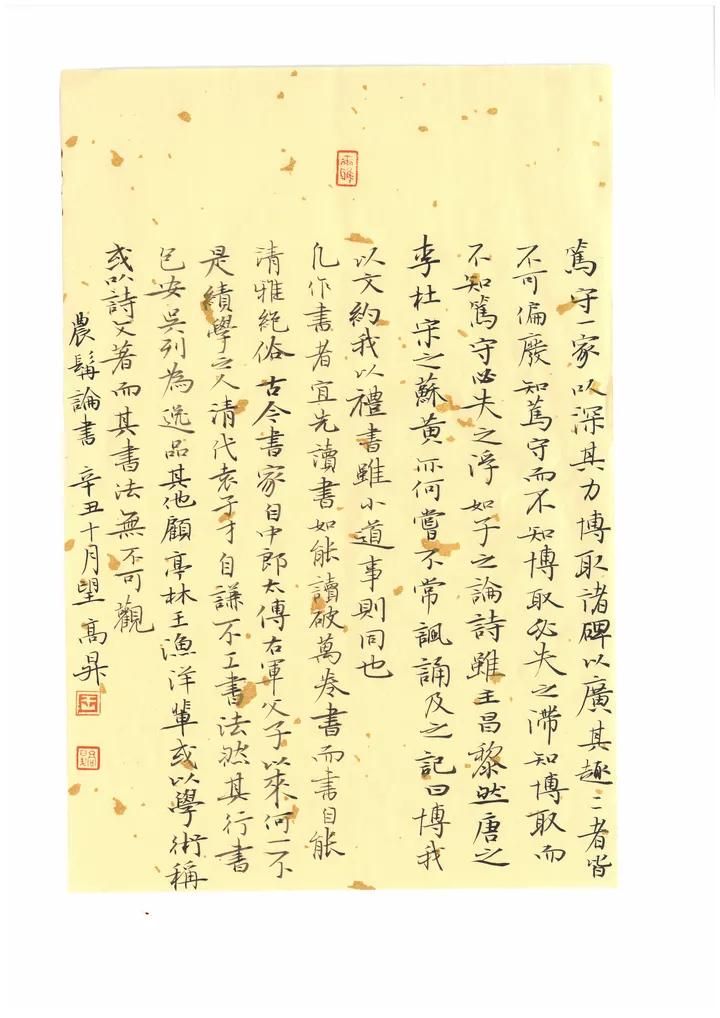 篤守一家以深其力博取諸碑以廣其趣二者皆
不可偏廢知篤守而不知博取必失之滯知博取而
不知篤守必失之浮如子之論詩雖主昌黎然唐之
李杜宋之蘇黃亦何嘗不常諷誦及之記曰博我
以文約我以禮書雖小道事則同也
凡作書者宜先讀書如能讀破萬卷書而書自能
清雅絕俗古今書家自中郎太傅右軍父子以來何一不
是績學之人清代袁子才自謙不工書法然其行書
包安吳列為逸品其他顧亭林王漁洋輩或以學術稱
或以詩文著而其書法無不可觀
農髯論書 辛丑十月望 高昇